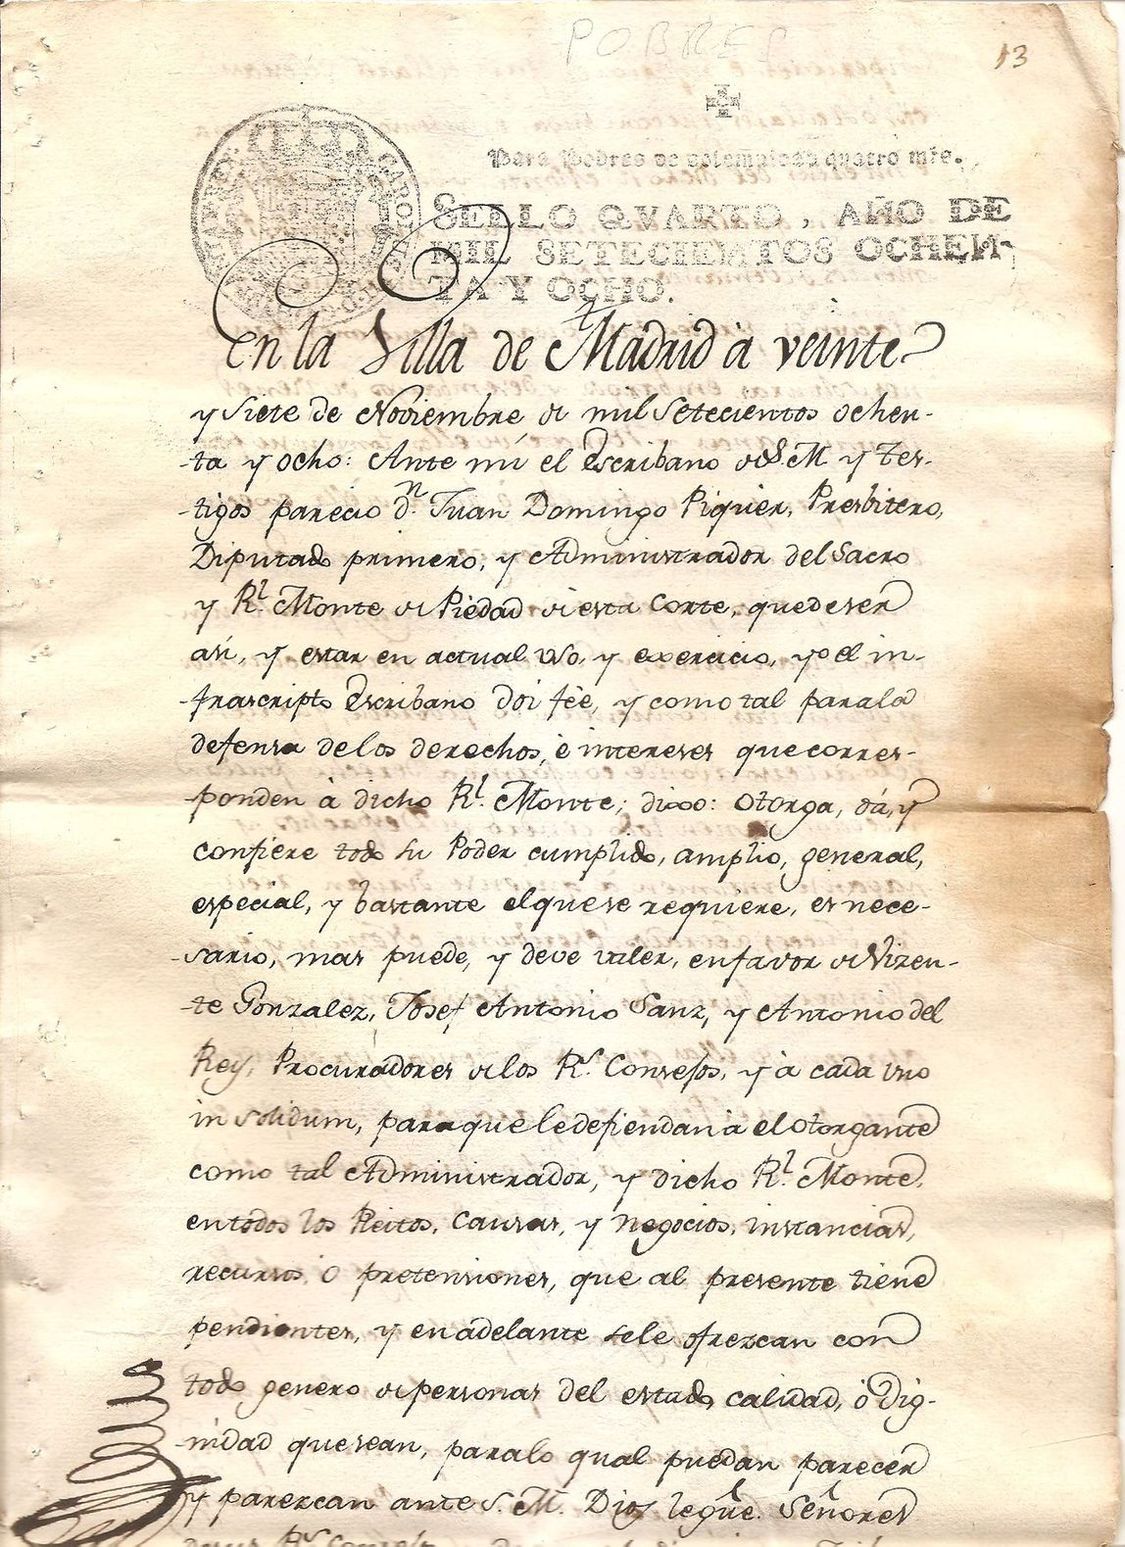 POBRES
13
Para Pobres de solemnidad quatro mrs.
SELLO QVARTO, AÑO DE
MIL SETECIENTOS OCHEN-
TA Y OCHO.
En la Villa de Madrid à veinte
y siete de Noviembre de mil setecientos ochen-
-ta y ocho: Ante mi el Escribano de S. M. y Tes-
-tigos parecio dn. Juan Domingo Piquer, Presbitero,
Diputado primero, y Administrador del Sacro
y Rl. Monte de Piedad de esta Corte, que de ser
asi, y estar en actual uso, y exercicio, yo el in-
-frascripto Escribano doi fèe, y como tal para la
defensa de los derechos, è intereses que corres-
-ponden à dicho Rl. Monte; dixo: Otorga, dá, y
confiere todo su Poder cumplido, amplio, general,
especial, y bastante el que se requiere, es nece-
-sario, mas puede, y deve valer, en favor de Vizen-
-te Gonzalez, Josef Antonio Sanz, y Antonio del
Rey, Procuradores de los Rs. Consejos, y à cada uno
in solidum, para que le defiendan à el otorgante
como tal Administrador, y dicho Rl. Monte,
en todos los Pleitos, Causas, y negocios, instancias,
recursos, ò pretensiones, que al presente tiene
pendientes, y en adelante se le ofrezcan con
todo genero de personas del estado, calidad, ò dig-
-nidad que sean, para lo qual puedan parecer
y parezcan ante S. M. Dios legue. Señores